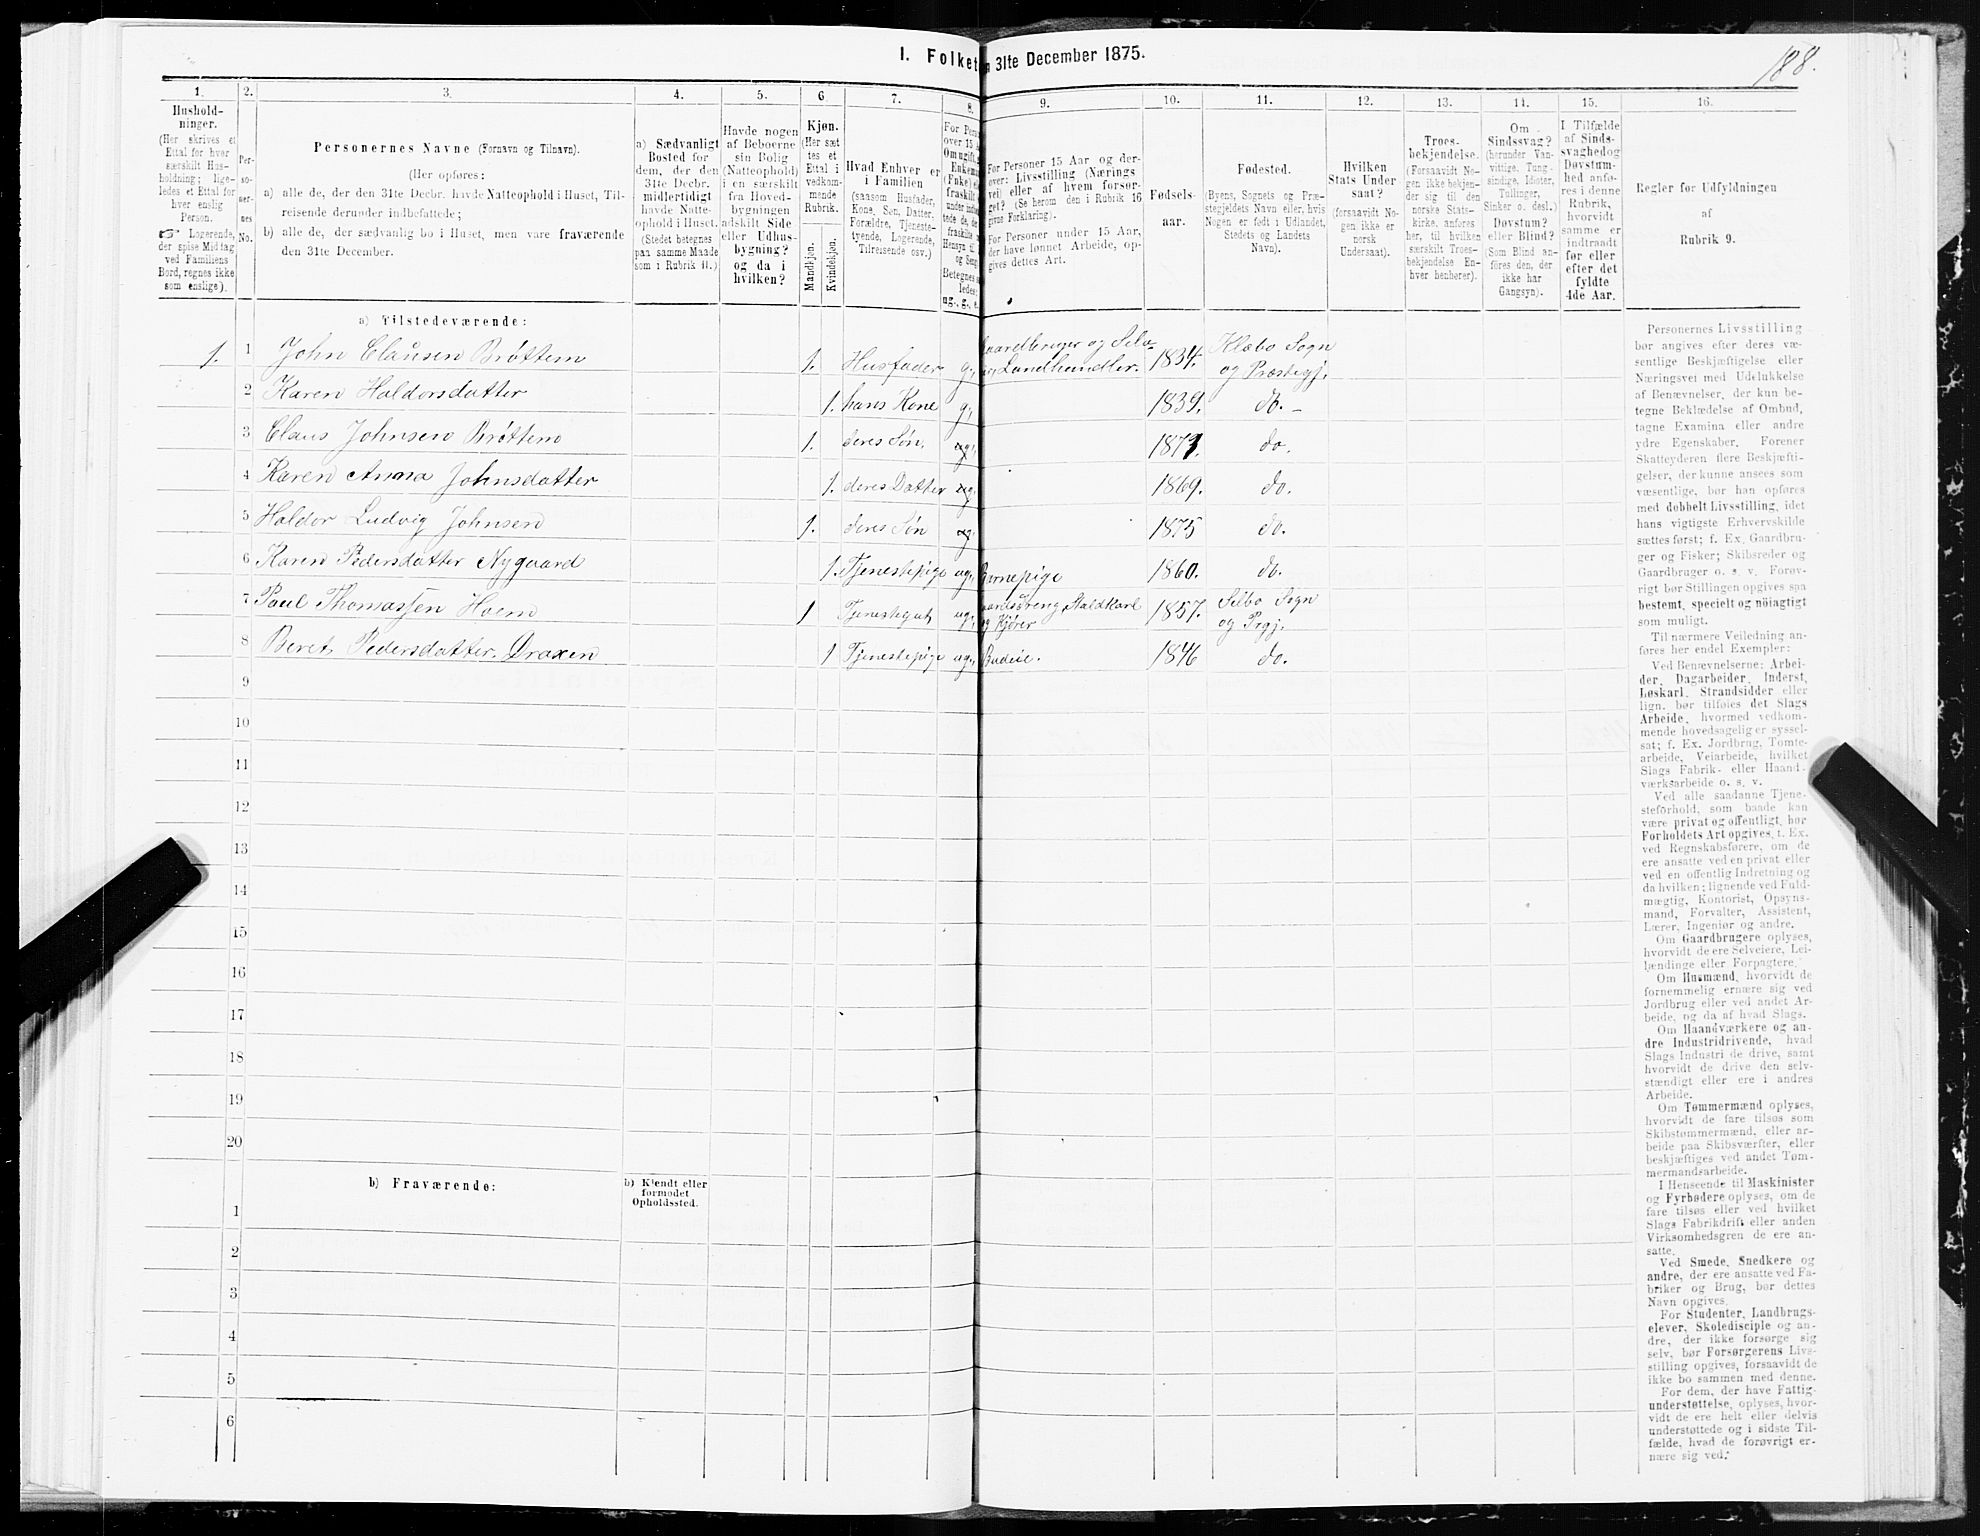 I. Folket
n 31te December 1875.
188.
1.
2.
3.
4.
5.
6.
7.
8.
9.
10.
11.
12.
13.
14.
15.
16.
Hushold-
ninger.
(Her skrives et
Ettal for hver
særskilt Hus-
holdning; lige-
ledes et Ettal for
hver enslig
Person.
☞ Logerende,
der spise Middag
ved Familiens
Bord, regnes ikke
som enslige).
Per-
so-
ner-
nes
No.
Personernes Navne (Fornavn og Tilnavn).
(Her opføres:
a) alle de, der den 31te Decbr. havde Natteophold i Huset, Til-
reisende derunder indbefattede;
b) alle de, der sædvanlig bo i Huset, men vare fraværende
den 31te December.
a) Sædvanligt
Bosted for
dem, der den
31te Decbr.
midlertidigt
havde Natte-
ophold i Huset.
(Stedet betegnes
paa samme Maade
som i Rubrik 11.)
Havde nogen
af Beboerne
sin Bolig
(Natteophold)
i en særskilt
fra Hoved-
bygningen
adskilt Side
eller Udhus-
bygning?
og da i
hvilken?
Kjøn.
(Her sæt
tes et
Ettal i
vedkom-
mende
Rubrik.
Mandkjøn.
Kvindekjøn.
Hvad Enhver er
i Familien
(saasom Husfader,
Kone, Søn, Datter,
Forældre, Tjeneste-
tyende, Logerende,
Tilreisende osv.)
For Pers
over 15 A
Om ugift, g
Enkema
(Fnke) e
fraskilt
under indb
tede de, de
fraskilte
Hensyn til
og Seng
Betegnes s
ledes:
ug., g., e.
For Personer 15 Aar og der-
over: Livsstilling (Nærings
vei) eller af hvem forsør-
get? (Se herom den i Rubrik 16
givne Forklaring).
For Personer under 15 Aar,
der have lønnet Arbeide, op-
gives dettes Art.
Fødsels-
aar.
Fødested.
(Byens, Sognets og Præ-
stegjeldets Navn eller, hvis
Nogen er født i Udlandet,
Stedets og Landets
Navn).
Hvilken
Stats Under
saat?
(forsaavidt No-
gen ikke er
norsk
Undersaat).
Troes-
bekjendelse.
(Forsaavidt No-
gen ikke bekjen-
der sig til den
norske Stats-
kirke, anføres
her, til hvilken
særskilt Troes-
bekjendelse En-
hver henhører).
Om
Sindssvag?
(herunder Van-
vittige, Tung-
sindige, Idioter,
Tullinger,
Sinker o. desl.)
Døvstum?
eller Blind?
(Som Blind an-
føres den, der
ikke har
Gangsyn).
I Tilfælde
af Sinds-
svaghed og
Døvstum-
hed anfø-
res i denne
Rubrik,
hvorvidt
samme er
indtraadt
før eller
efter det
fyldte
4de Aar.
Regler for Udfyldningen
af
Rubrik 9.
a) Tilstedeværende:
1. 1 John Clausen Brøttem 1. Husfader g, aardbruger og Selv 1834. Klæbo Sogn
Landhandler. og Præstegj.
2 Karen Haldorsdatter 1. hans Kone g, 1839. do. -
3 Claus Johnsen Brøttem 1. deres Søn, ug, 1871. do.
4 Karen Anna Johnsdatter 1. deres Datter ug, 1869. do.
5 Haldor Ludvig Johnsen 1. deres Søn ug, 1875 do.
6 Karen Pedersdatter Nygaard 1. Tjenestepige ug, Barnepige 1860. do.
7 Paul Thomassen Hoem 1 Tjenestegut ug, aardsdreng Staldkarl 1857. Selbo Sogn
og Kjører og Prgj.
8 Beret Pedersdatter Draxen 1 Tjenestepige ug, Budeie. 1846 do.
9
10
11
12
13
14
15
16
17
18
19
20
b) Fraværende:
b) Kjendt eller
formodet
Opholdssted.
1
2
3
4
5
6
Personernes Livsstilling
bør angives efter deres væ-
sentlige Beskjæftigelse eller
Næringsvei med Udelukkelse
af Benævnelser, der kun be-
tegne Beklædelse af Ombud,
tagne Examina eller andre
ydre Egenskaber. Forener
Skatteyderen flere Beskjæfti-
gelser, der kunne ansees som
væsentlige, bør han opføres
med dobbelt Livsstilling, idet
hans vigtigste Erhvervskilde
sættes først; f. Ex. Gaardbru-
ger og Fisker; Skibsreder og
Gaardbruger o. s. v. Forøv-
rigt bør Stillingen opgives saa
bestemt, specielt og nöiagtigt
som muligt.
Til nærmere Veiledning an-
føres her endel Exempler:
Ved Benævnelserne: Arbei-
der, Dagarbeider, Inderst,
Løskarl, Strandsidder eller
lign. bør tilføies det Slags
Arbeide, hvormed vedkom-
mende hovedsagelig er syssel-
sat; f. Ex. Jordbrug, Tomte-
arbeide, Veiarbeide, hvilket
Slags Fabrik- eller Haand-
værksarbeide o. s. v.
Ved alle saadanne Tjene-
steforhold, som baade kan
være privat og offentligt, bør
Forholdets Art opgives, t. Ex.
ved Regnskabsførere, om de
ere ansatte ved en privat eller
ved en offentlig Indretning og
da hvilken; lignende ved Fuld-
mægtig, Kontorist, Opsyns-
mand, Forvalter, Assistent,
Lærer, Ingeniør og andre.
Om Gaardbrugere oplyses,
hvorvidt de ere Selveiere, Lei-
lændinge eller Forpagtere.
Om Husmænd, hvorvidt de
fornemmelig ernære sig ved
Jordbrug eller ved andet Ar-
beide, og da af hvad Slags.
Om Haandværkere og an-
dre Industridrivende, hvad
Slags Industri de drive, samt
hvorvidt de drive den selv-
stændigt eller ere i andres
Arbeide.
Om Tømmermænd oplyses,
hvorvidt de fare tilsøs som
Skibstømmermænd, eller ar-
beide paa Skibsværfter, eller
beskjæftiges ved andet Tøm-
mermandsarbeide.
I Henseende til Maskinister
og Fyrbødere oplyses, om de
fare tilsøs eller ved hvilket
Slags Fabrikdrift eller anden
Virksomhedsgren de ere an-
satte.
Ved Smede, Snedkere og
andre, der ere ansatte ved Fa-
briker og Brug, bør dettes
Navn opgives.
For Studenter, Landbrugs-
elever, Skoledisciple og an-
dre, der ikke forsørge sig
selv, bør Forsørgerens Livs-
stilling opgives, forsaavidt de
ikke bo sammen med denne.
For dem, der have Fattig-
understøttelse, oplyses, hvor-
vidt de ere helt eller delvis
understøttede og i sidste Til-
fælde, hvad de forøvrigt er-
nære sig ved.